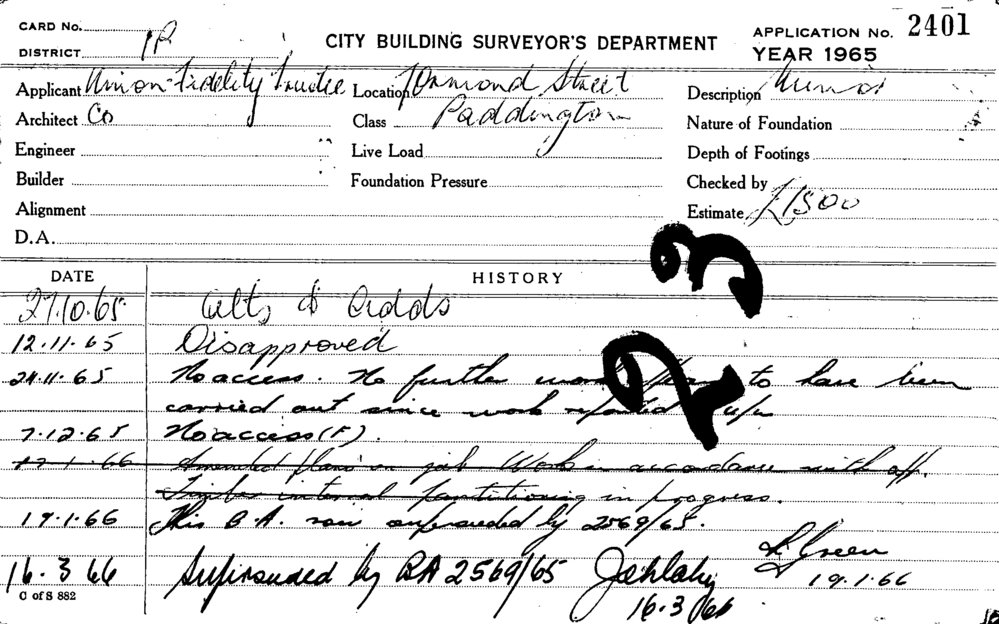 CARD No.
DISTRICT
CITY BUILDING SURVEYOR'S DEPARTMENT
APPLICATION No. 2401
YEAR 1965
Applicant Union-Fidelity Trustee
Location Ormond Street
Description Minor
Architect Co
Class Paddington
Nature of Foundation
Engineer
Live Load
Depth of Footings
Builder
Foundation Pressure
Checked by
Alignment
Estimate £1500
D.A.
DATE
HISTORY
27.10.65 Alts & Adds
12.11.65 Disapproved
24.11.65 No access. No further work to have been
carried out since work reported
7.12.65 No access (F).
Amended plans on job Work in accordance with app.
internal partitioning in progress.
19.1.66 This B.A. now superseded by 2569/65.
Green
19.1.66
16.3.66 Superseded by BA 2569/65
16.3.66
C of S 882